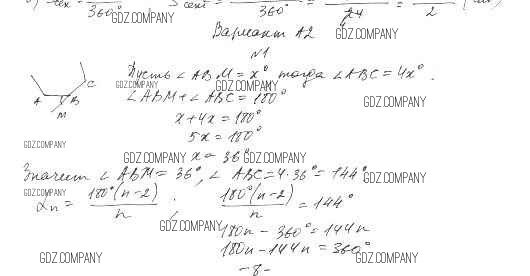 360° GDZ.COMPANY S сект 360° 24 2
Вариант А2 GDZ.COMPANY
N1
Пусть ∠ABM = x° тогда ∠ABC = 4x°.
GDZ.COMPANY GDZ.COMPANY
A B C M
∠ABM + ∠ABC = 180° GDZ.COMPANY
x + 4x = 180°
5x = 180°
GDZ.COMPANY
GDZ.COMPANY x = 36° GDZ.COMPANY
Значит ∠ABM = 36°, ∠ABC = 4·36° = 144° GDZ.COMPANY
GDZ.COMPANY
αn = 180°(n-2)/n . 180°(n-2)/n = 144°
GDZ.COMPANY 180n - 360° = 144n
180n - 144n = 360°
GDZ.COMPANY GDZ.COMPANY
-8-